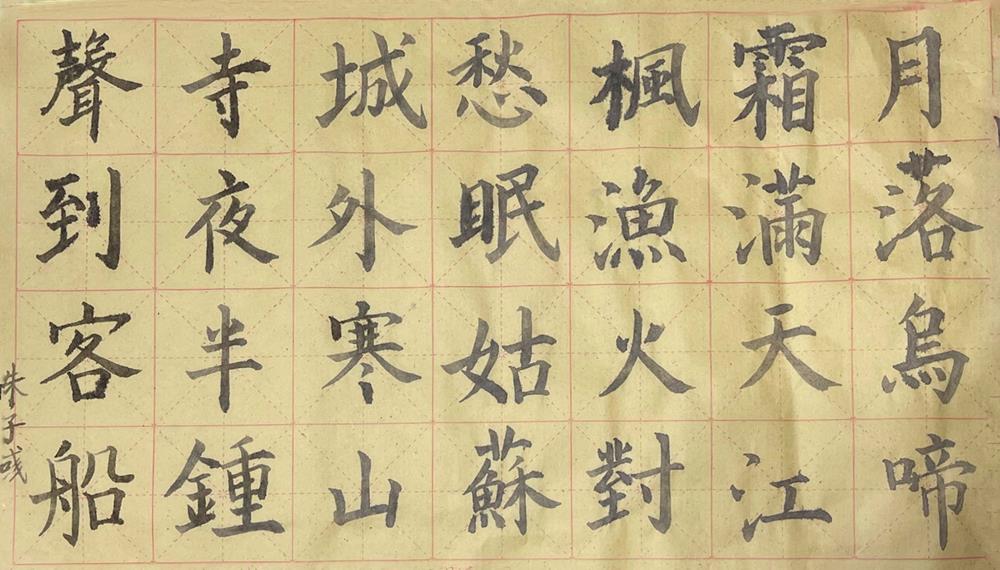 月落烏啼
霜滿天江
楓漁火對
愁眠姑蘇
城外寒山
寺夜半鍾
聲到客船
朱子彧